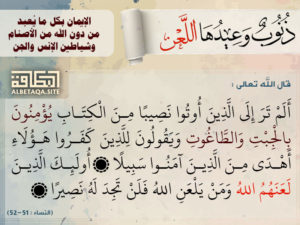 ذُنُوبٌ وَعِيدُهَا اللَّعْن
الإيمان بكل ما يُعبد
من دون الله من الأصنام
وشياطين الإنس والجن
البطاقة
ALBETAQA.SITE
قال الله تعالى :
أَلَمْ تَرَ إِلَى الَّذِينَ أُوتُوا نَصِيبًا مِنَ الْكِتَابِ يُؤْمِنُونَ
بِالْجِبْتِ وَالطَّاغُوتِ وَيَقُولُونَ لِلَّذِينَ كَفَرُوا هَؤُلَاءِ
أَهْدَى مِنَ الَّذِينَ آمَنُوا سَبِيلًا ۝ أُولَئِكَ الَّذِينَ
لَعَنَهُمُ اللهُ وَمَنْ يَلْعَنِ اللهُ فَلَنْ تَجِدَ لَهُ نَصِيرًا ۝
(النساء : 51-52)